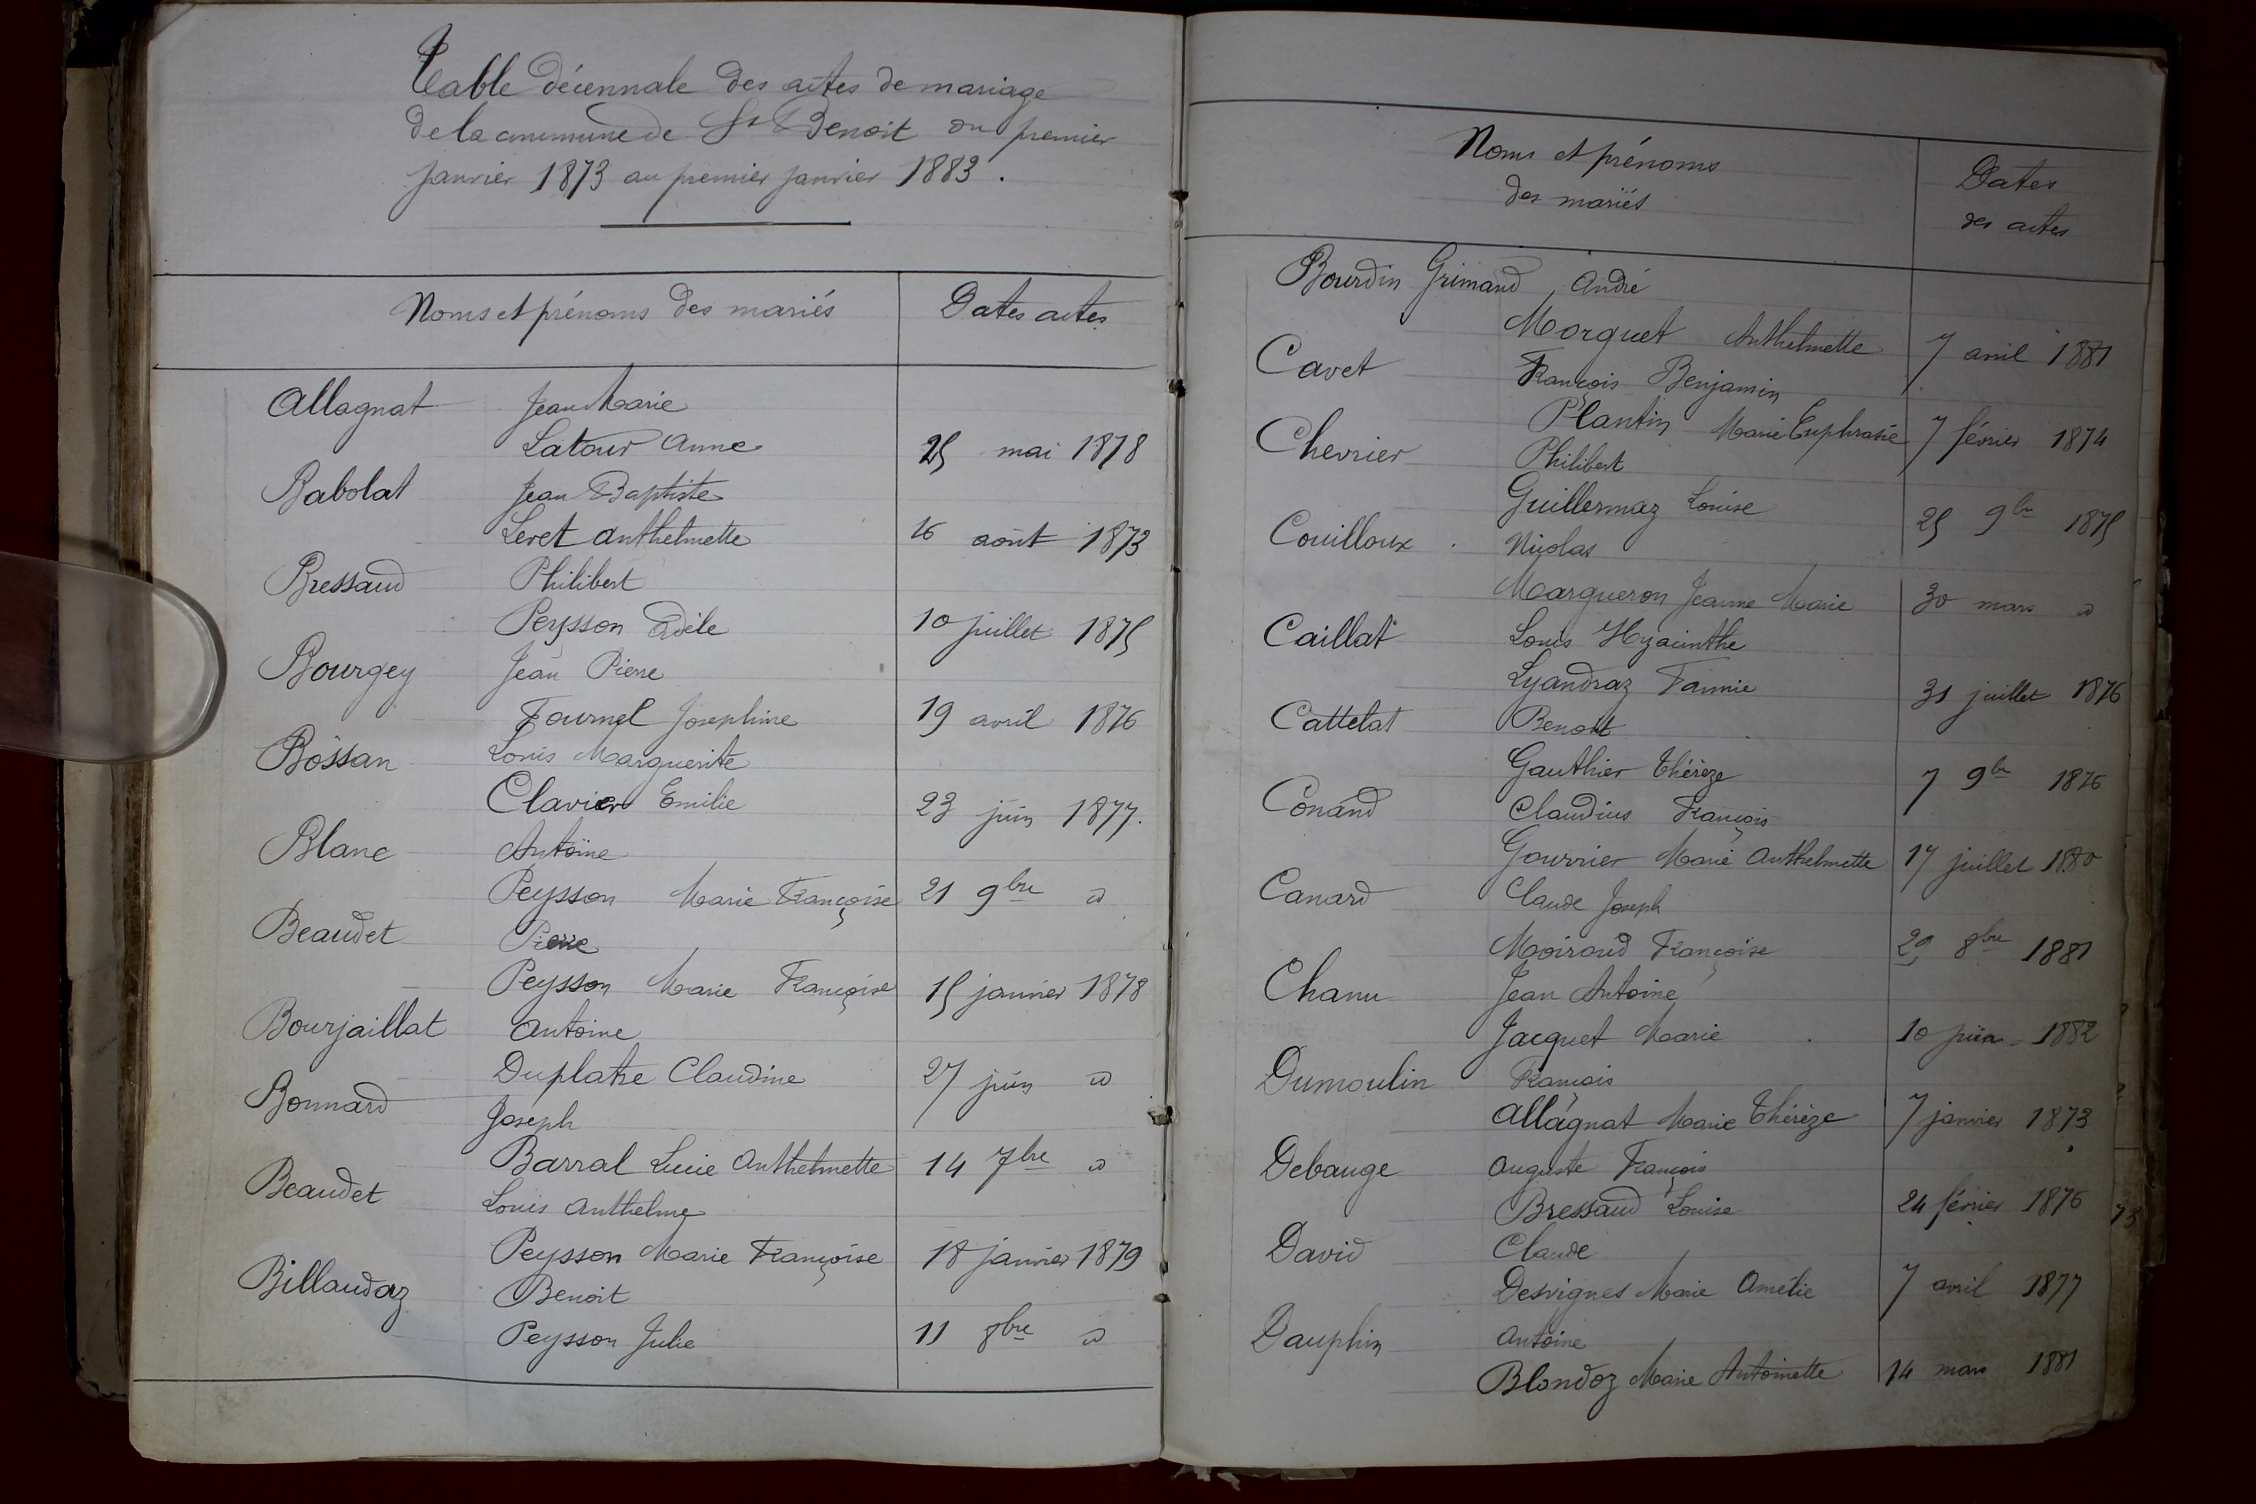 Table décennale des actes de mariage
de la commune de St Benoit du premier
janvier 1873 au premier janvier 1883.
Noms et prénoms des mariés Dates actes
Allagnat Jean Marie
Latour Anne 25 mai 1878
Babolat Jean Baptiste
Leret Anthelmette 16 août 1873
Bressaud Philibert
Peysson Adèle 10 juillet 1875
Bourgey Jean Pierre
Fournel Josephine 19 avril 1876
Bossan Louis Marguerite
Clavier Emilie 23 juin 1877.
Blanc Antoine
Peysson Marie Françoise 21 9bre d
Beaudet Pierre
Peysson Marie Françoise 15 janvier 1878
Bourjaillat Antoine
Duplatre Claudine 27 juin d
Bonnard Joseph
Barral Lucie Anthelmette 14 7bre d
Beaudet Louis Anthelme
Peysson Marie Françoise 18 janvier 1879
Billaudaz Benoit
Peysson Julie 11 8bre d
Noms et prénoms Dates
des mariés des actes
Bourdin Grimaud André
Morguet Anthelmette 7 avril 1881
Cavet François Benjamin
Plantin Marie Euphrasie 7 février 1874
Chevrier Philibert
Guillermaz Louise 25 9bre 1875
Couilloux Nicolas
Margueron Jeanne Marie 30 mars d
Caillat Louis Hyacinthe
Lyandraz Fannie 31 juillet 1876
Cattelat Benoit
Gauthier Thérèze 7 9bre 1876
Conand Claudius François
Gourrier Marie Anthelmette 17 juillet 1880
Canard Claude Joseph
Moiroud Françoise 29 8bre 1881
Chanu Jean Antoine
Jacquet Marie 10 juin 1882
Dumoulin François
Allagnat Marie Thérèze 7 janvier 1873
Debauge Auguste François
Bressaud Louise 24 février 1876
David Claude
Desvignes Marie Amélie 7 avril 1877
Dauphin Antoine
Blondoz Marie Antoinette 14 mars 1881